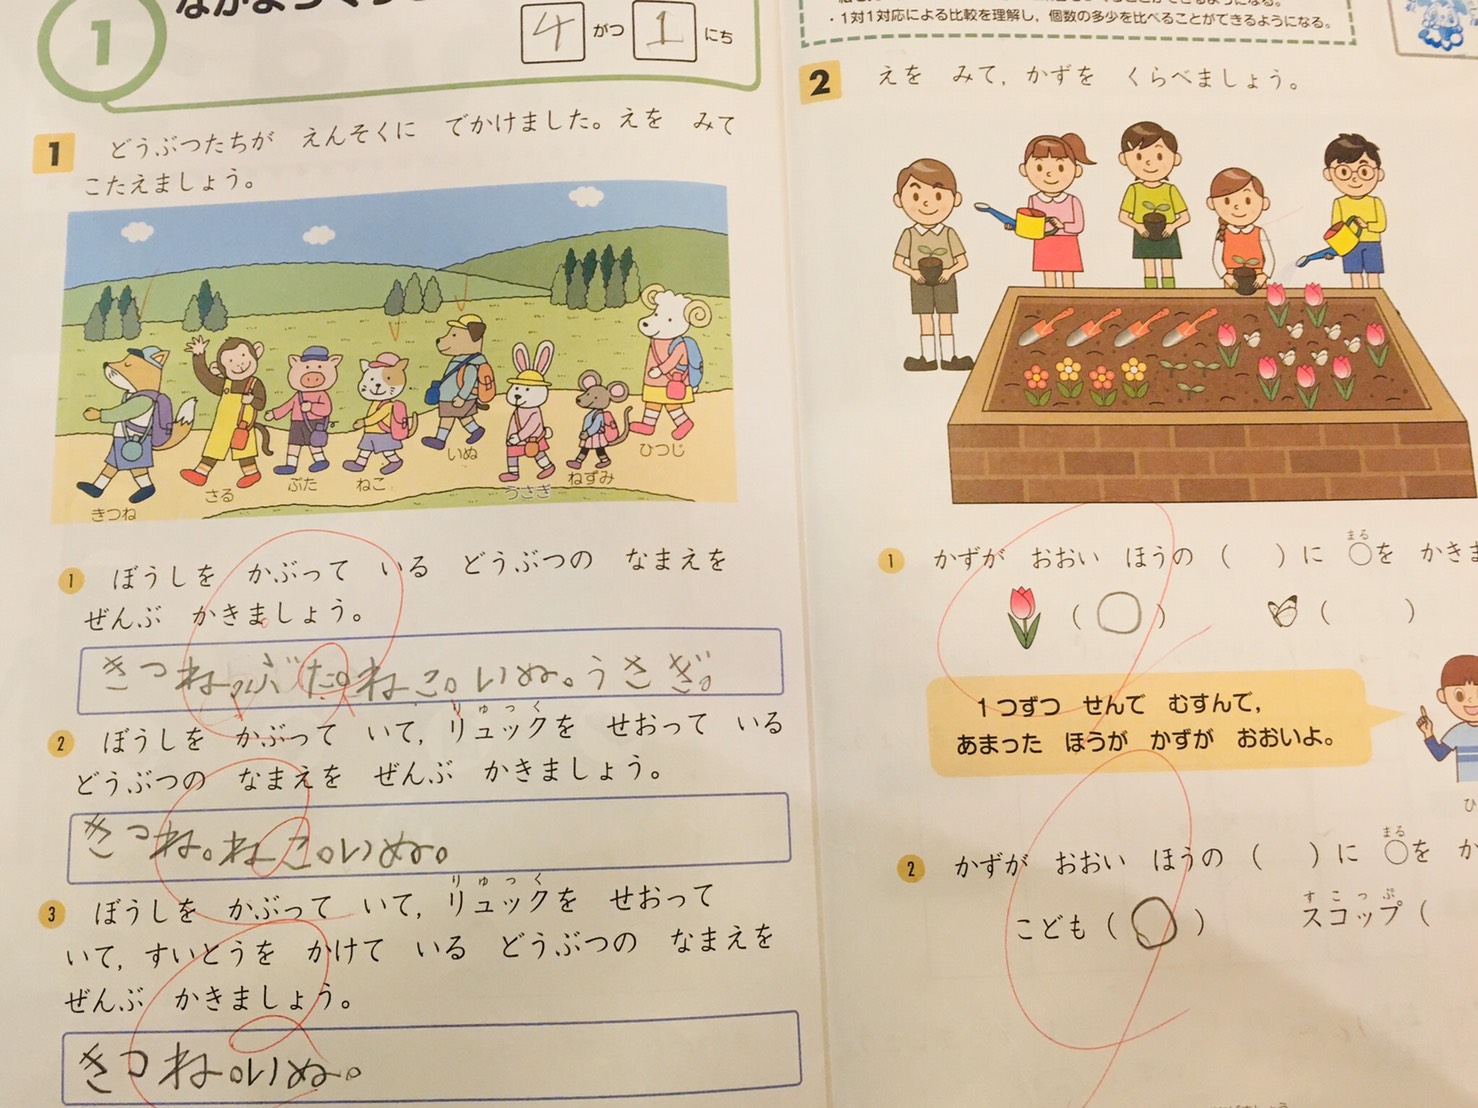 1
4 がつ 1 にち
1 どうぶつたちが えんそくに でかけました。えを みて
こたえましょう。
きつね
さる
ぶた
ねこ
いぬ
うさぎ
ねずみ
ひつじ
1 ぼうしを かぶって いる どうぶつの なまえを
ぜんぶ かきましょう。
きつね。ぶた。ねこ。いぬ。うさぎ。
2 ぼうしを かぶって いて,リュックを せおって いる
りゅっく
どうぶつの なまえを ぜんぶ かきましょう。
きつね。ねこ。いぬ。
3 ぼうしを かぶって いて,リュックを せおって
りゅっく
いて,すいとうを かけて いる どうぶつの なまえを
ぜんぶ かきましょう。
きつね。いぬ。
・1対1対応による比較を理解し,個数の多少を比べることができるようになる。
2 えを みて,かずを くらべましょう。
1 かずが おおい ほうの ( )に ○を かきま
まる
( ○ ) ( )
1つずつ せんで むすんで,
あまった ほうが かずが おおいよ。
ひ
2 かずが おおい ほうの ( )に ○を か
まる
こども ( ○ ) スコップ (
すこっぷ